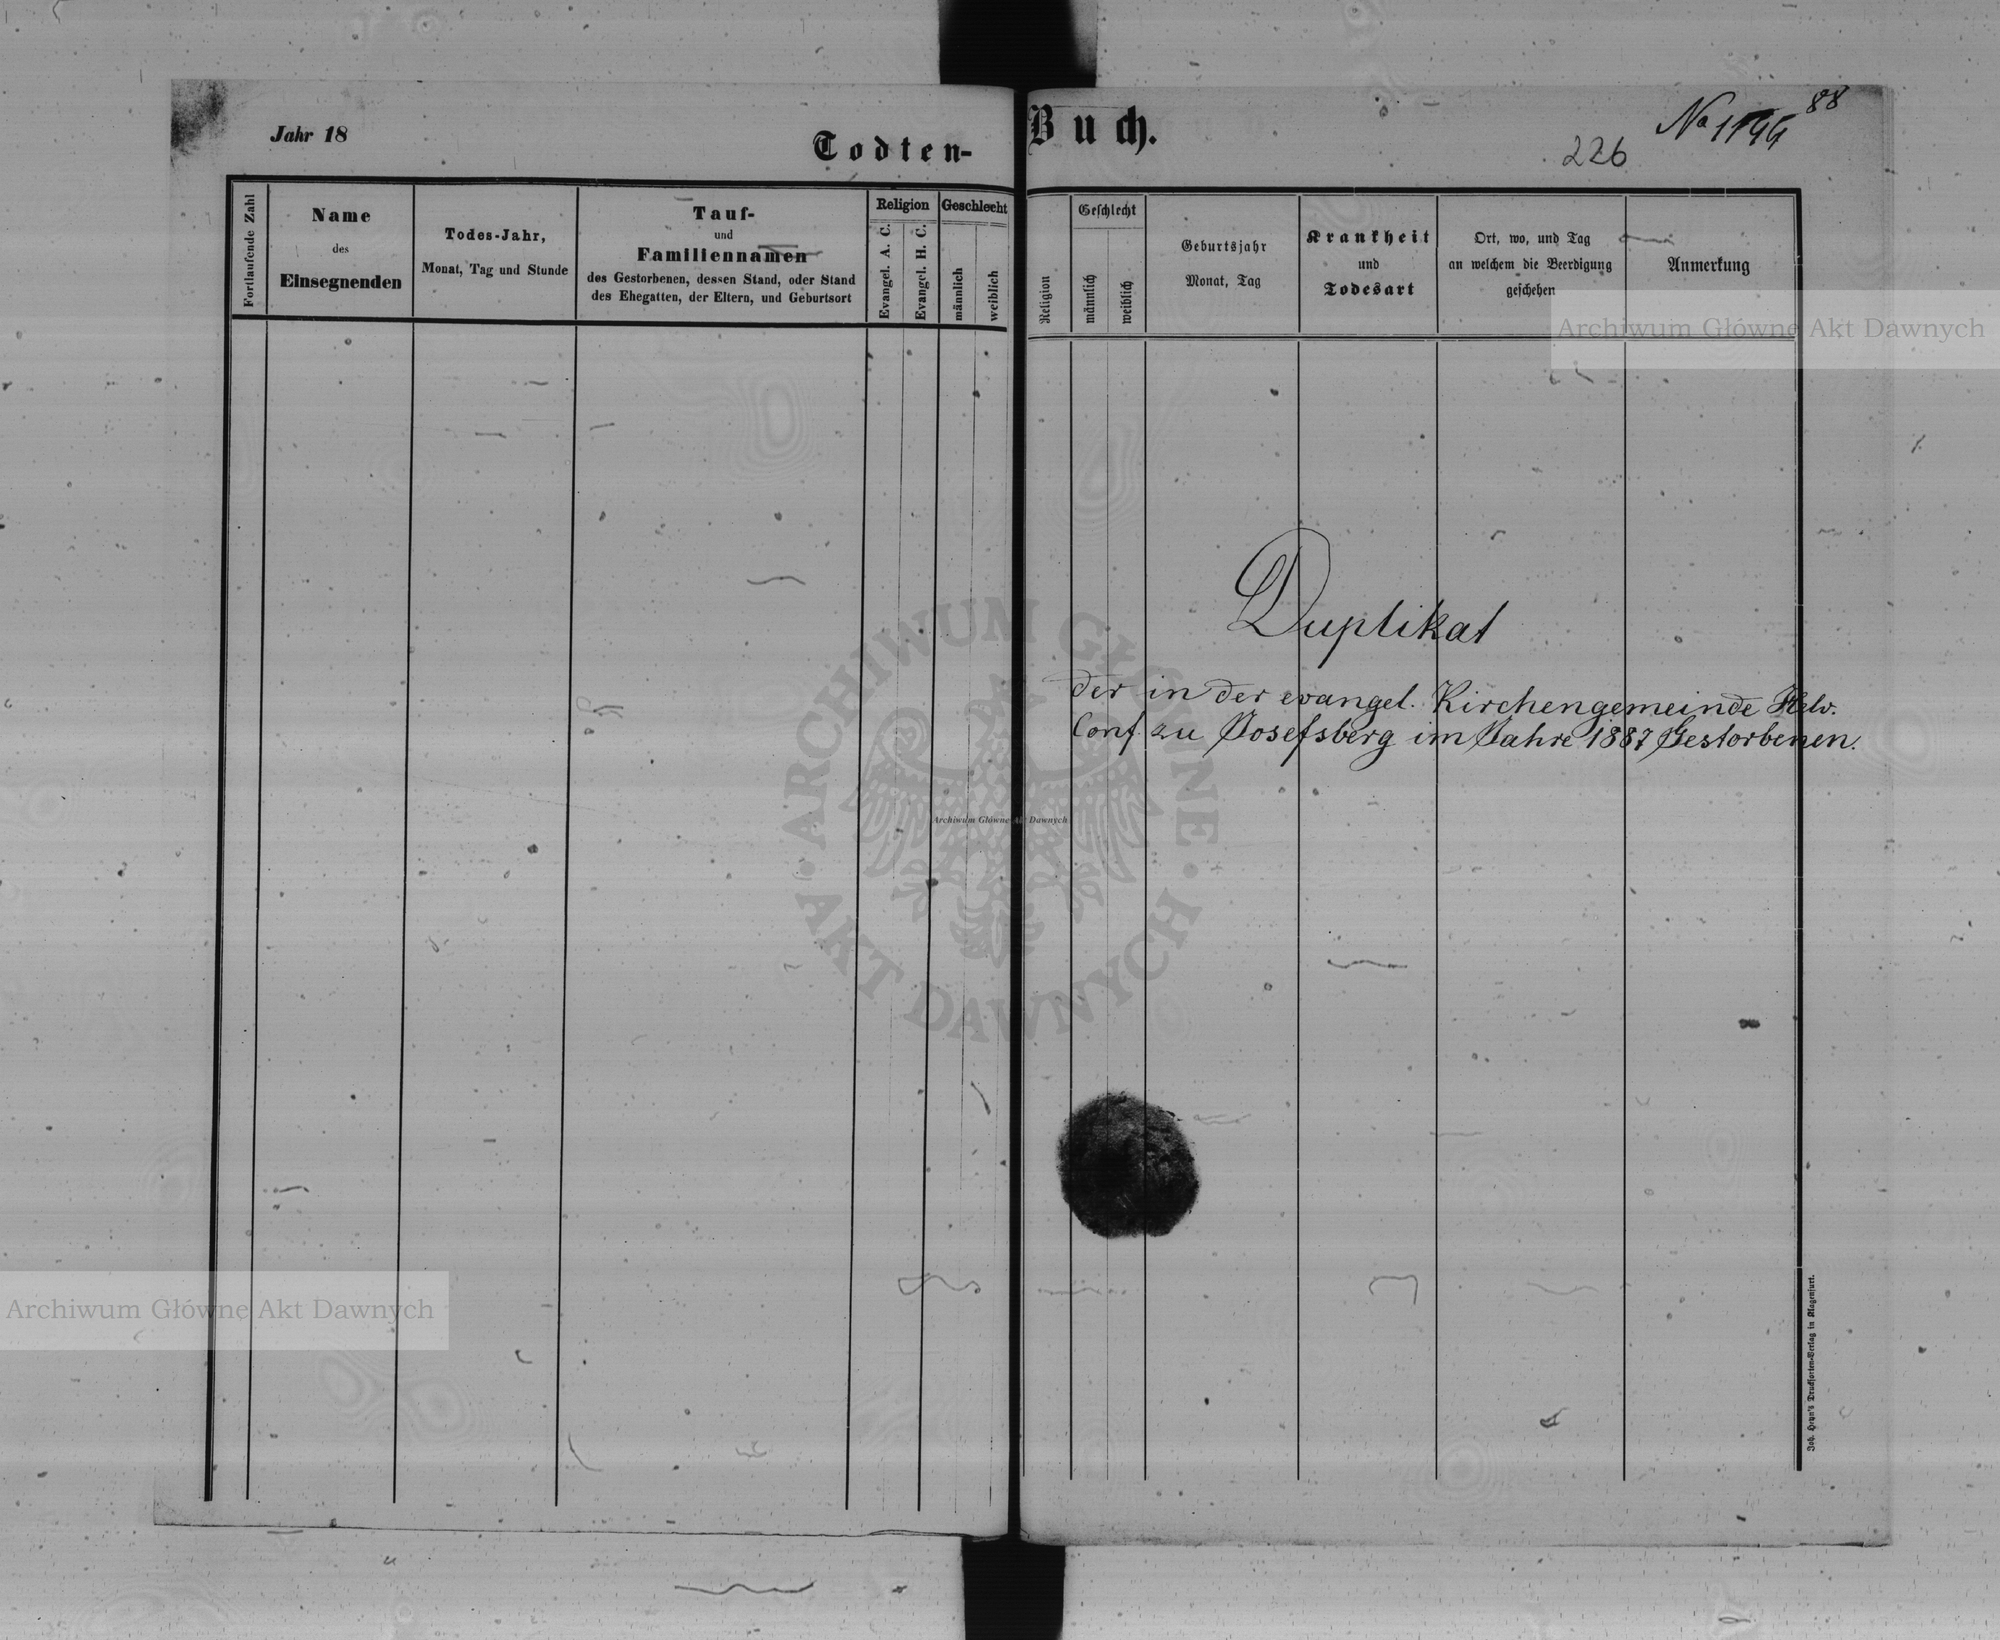 Jahr 18
Todten-
Fortlaufende Zahl
Name
des
Einsegnenden
Todes-Jahr,
Monat, Tag und Stunde
Tauf-
und
Familiennamen
des Gestorbenen, dessen Stand, oder Stand
des Ehegatten, der Eltern, und Geburtsort
Religion
Evangel. A. C.
Evangel. H. C.
Geschlecht
männlich
weiblich
Buch.
226
No
88
Religion
Geschlecht
männlich
weiblich
Geburtsjahr
Monat, Tag
Krankheit
und
Todesart
Ort, wo, und Tag
an welchem die Beerdigung
geschehen
Anmerkung
Archiwum Główne Akt Dawnych
Duplikat
der in der evangel. Kirchengemeinde Helv.
Conf. zu Josefsberg im Jahre 1887 Gestorbenen.
ARCHIWUM GŁÓWNE
AKT DAWNYCH
Archiwum Główne Akt Dawnych
Archiwum Główne Akt Dawnych
Joh. Heyn's Drucksorten-Verlag in Klagenfurt.